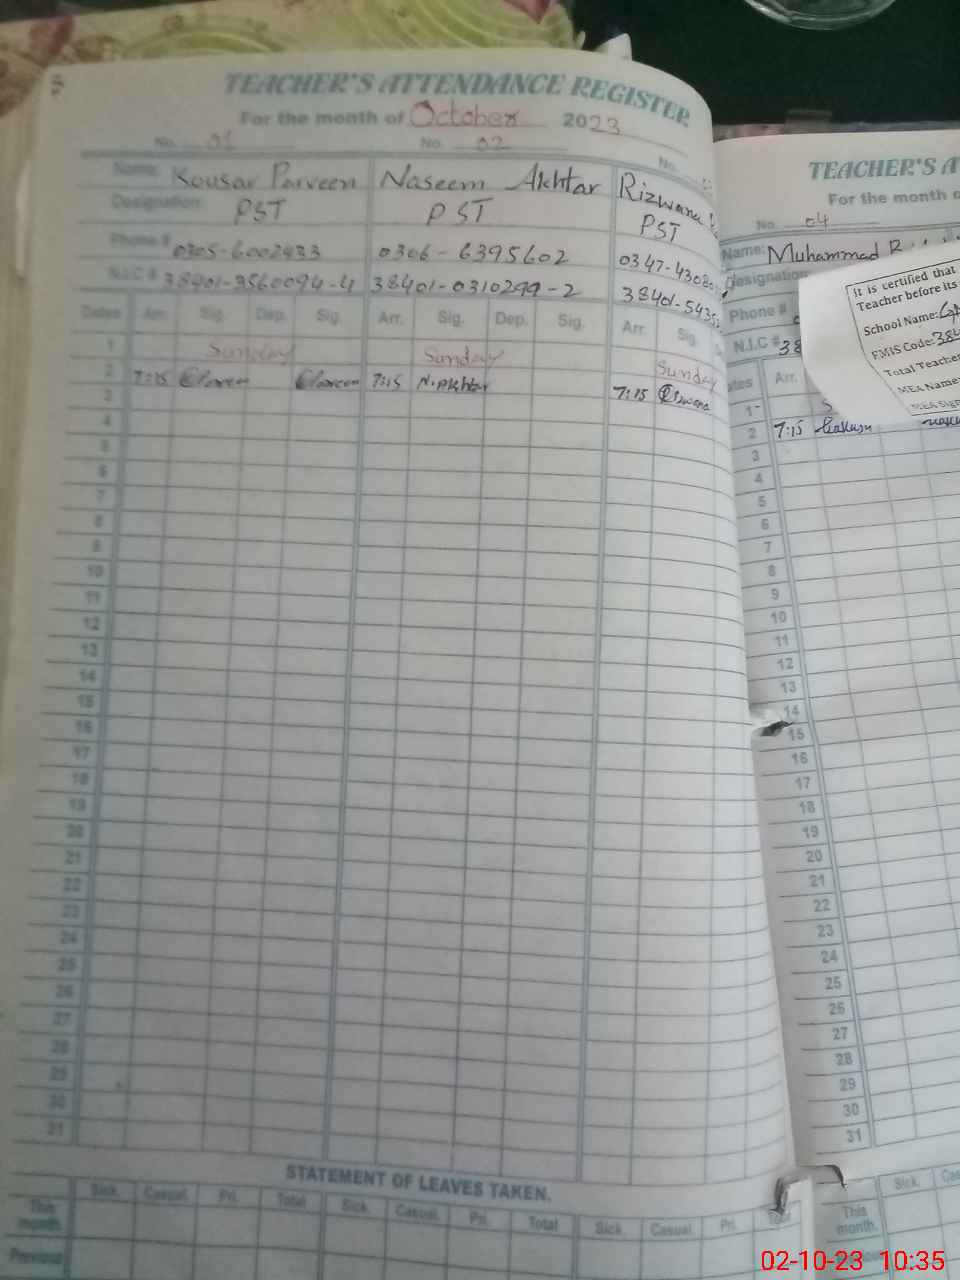 TEACHER'S ATTENDANCE REGISTER
For the month of October 2023
No. 01 No. 02 No.
Name: Kousar Parveen Naseem Akhtar Rizwana
Designation: PST PST PST
Phone # 0305-6002433 0306-6395602
N.I.C # 38401-3560094-4 38401-0310299-2
Dates Arr. Sig. Dep. Sig. Arr. Sig. Dep. Sig. Arr. Sig.
1 Sunday Sunday Sunday
2 7:15 7:15 N.Akhtar 7:15
3
4
5
6
7
8
9
10
11
12
13
14
15
16
17
18
19
20
21
22
23
24
25
26
27
28
29
30
31
STATEMENT OF LEAVES TAKEN.
Sick. Casual. Pri. Total Sick. Casual. Pri. Total Sick. Casual. Pri. Total
This month.
Previous
TEACHER'S
For the month
No. 04
Name: Muhammad
Designation
Phone #
N.I.C # 38
Arr.
1
2 7:15
3
4
5
6
7
8
9
10
11
12
13
14
15
16
17
18
19
20
21
22
23
24
25
26
27
28
29
30
31
Sick.
This month.
It is certified that
Teacher before its
School Name:
EMIS Code: 384
Total Teacher
MEA Name:
MEA Sign
02-10-23 10:35